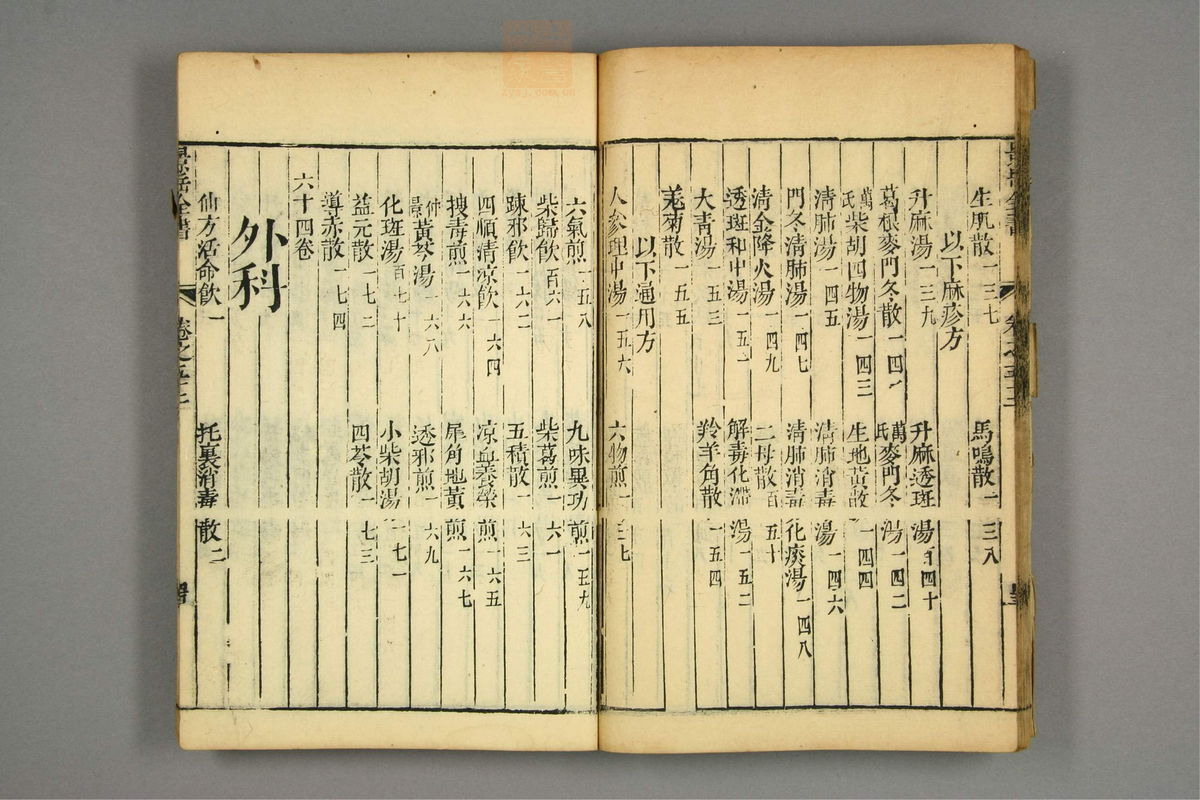 生肌散一三七　馬鳴散一三八
以下麻疹方
升麻湯一三九　升麻透斑湯百四十
葛根麥門冬散一四一　萬氏麥門冬湯一四二
萬氏柴胡四物湯一四三　生地黃散一四四
清肺湯一四五　清肺消毒湯一四六
門冬清肺湯一四七　清肺消毒化痰湯一四八
清金降火湯一四九　二母散百五十
透斑和中湯一五一　解毒化滯湯一五二
大青湯一五三　羚羊角散一五四
羗菊散一五五
以下通用方
人參理中湯一五六　六物煎一五七
六氣煎一五八　九味異功煎一五九
柴歸飲百六一　柴葛煎一六一
疎邪飲一六二　五積散一六三
四順清凉飲一六四　凉血養榮煎一六五
搜毒煎一六六　犀角地黃煎一六七
仲景黃芩湯一六八　透邪煎一六九
化斑湯百七十　小柴胡湯一七一
益元散一七二　四苓散一七三
導赤散一七四
六十四卷
外科
仙方活命飲一　托裏消毒散二
景岳全書　卷之五十二